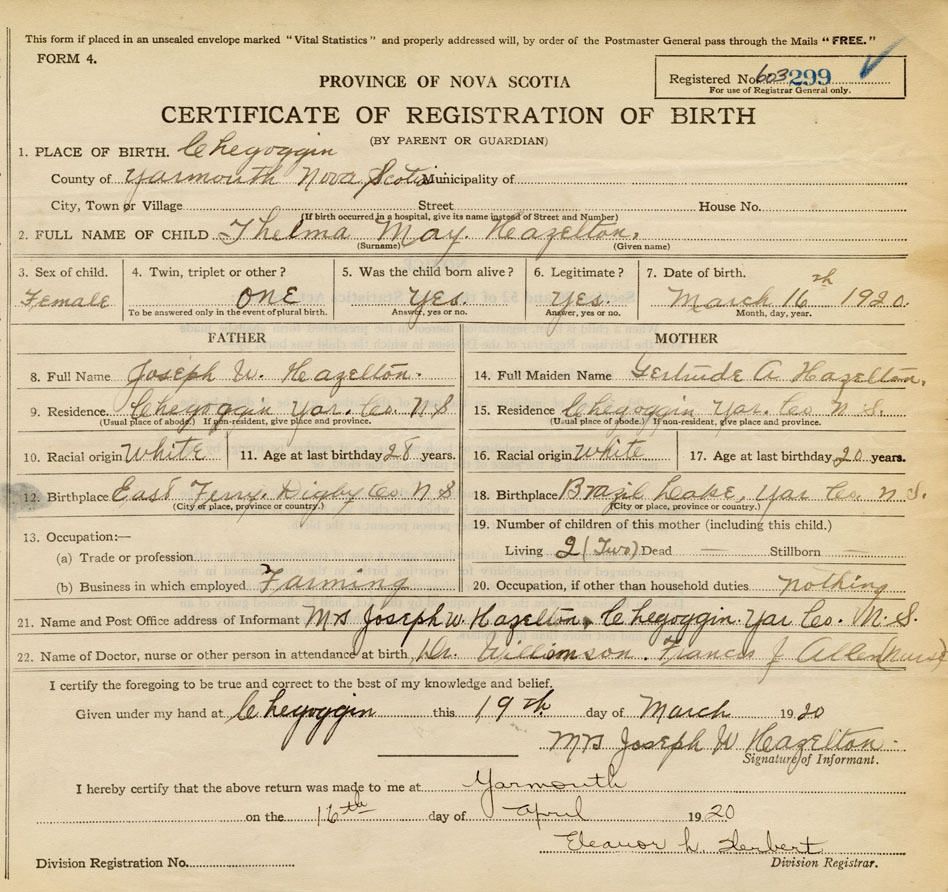 This form if placed in an unsealed envelope marked "Vital Statistics" and properly addressed will, by order of the Postmaster General pass through the Mails "FREE."
FORM 4.
Registered No. 603299
For use of Registrar General only.
PROVINCE OF NOVA SCOTIA
CERTIFICATE OF REGISTRATION OF BIRTH
(BY PARENT OR GUARDIAN)
1. PLACE OF BIRTH. Chegoggin
County of Yarmouth Nova Scotia Municipality of
City, Town or Village Street House No.
(If birth occurred in a hospital, give its name instead of Street and Number)
2. FULL NAME OF CHILD Thelma May. Hazelton.
(Surname) (Given name)
3. Sex of child. 4. Twin, triplet or other? 5. Was the child born alive? 6. Legitimate? 7. Date of birth.
Female ONE Yes. Yes. March 16th 1920.
To be answered only in the event of plural birth. Answer, yes or no. Answer, yes or no. Month, day, year.
FATHER MOTHER
8. Full Name Joseph W. Hazelton. 14. Full Maiden Name Gertrude A Hazelton.
9. Residence. Chegoggin Yar. Co. N S 15. Residence Chegoggin Yar. Co N S.
(Usual place of abode.) If non-resident, give place and province. (Usual place of abode.) If non-resident, give place and province.
10. Racial origin White 11. Age at last birthday 28 years. 16. Racial origin White 17. Age at last birthday 20 years.
12. Birthplace East Ferry. Digby Co N S 18. Birthplace Brazil Lake, Yar Co. N S.
(City or place, province or country.) (City or place, province or country.)
13. Occupation:— 19. Number of children of this mother (including this child.)
(a) Trade or profession Living 2 (Two) Dead — Stillborn —
(b) Business in which employed Farming 20. Occupation, if other than household duties Nothing
21. Name and Post Office address of Informant Mrs Joseph W Hazelton, Chegoggin. Yar Co. N. S.
22. Name of Doctor, nurse or other person in attendance at birth, Dr. Williamson. Francis J Allen Nurse
I certify the foregoing to be true and correct to the best of my knowledge and belief.
Given under my hand at Chegoggin this 19th day of March 1920
Mrs Joseph W Hazelton.
Signature of Informant.
I hereby certify that the above return was made to me at Yarmouth
on the 16th day of April 1920
Eleanor L. Herbert
Division Registration No. Division Registrar.